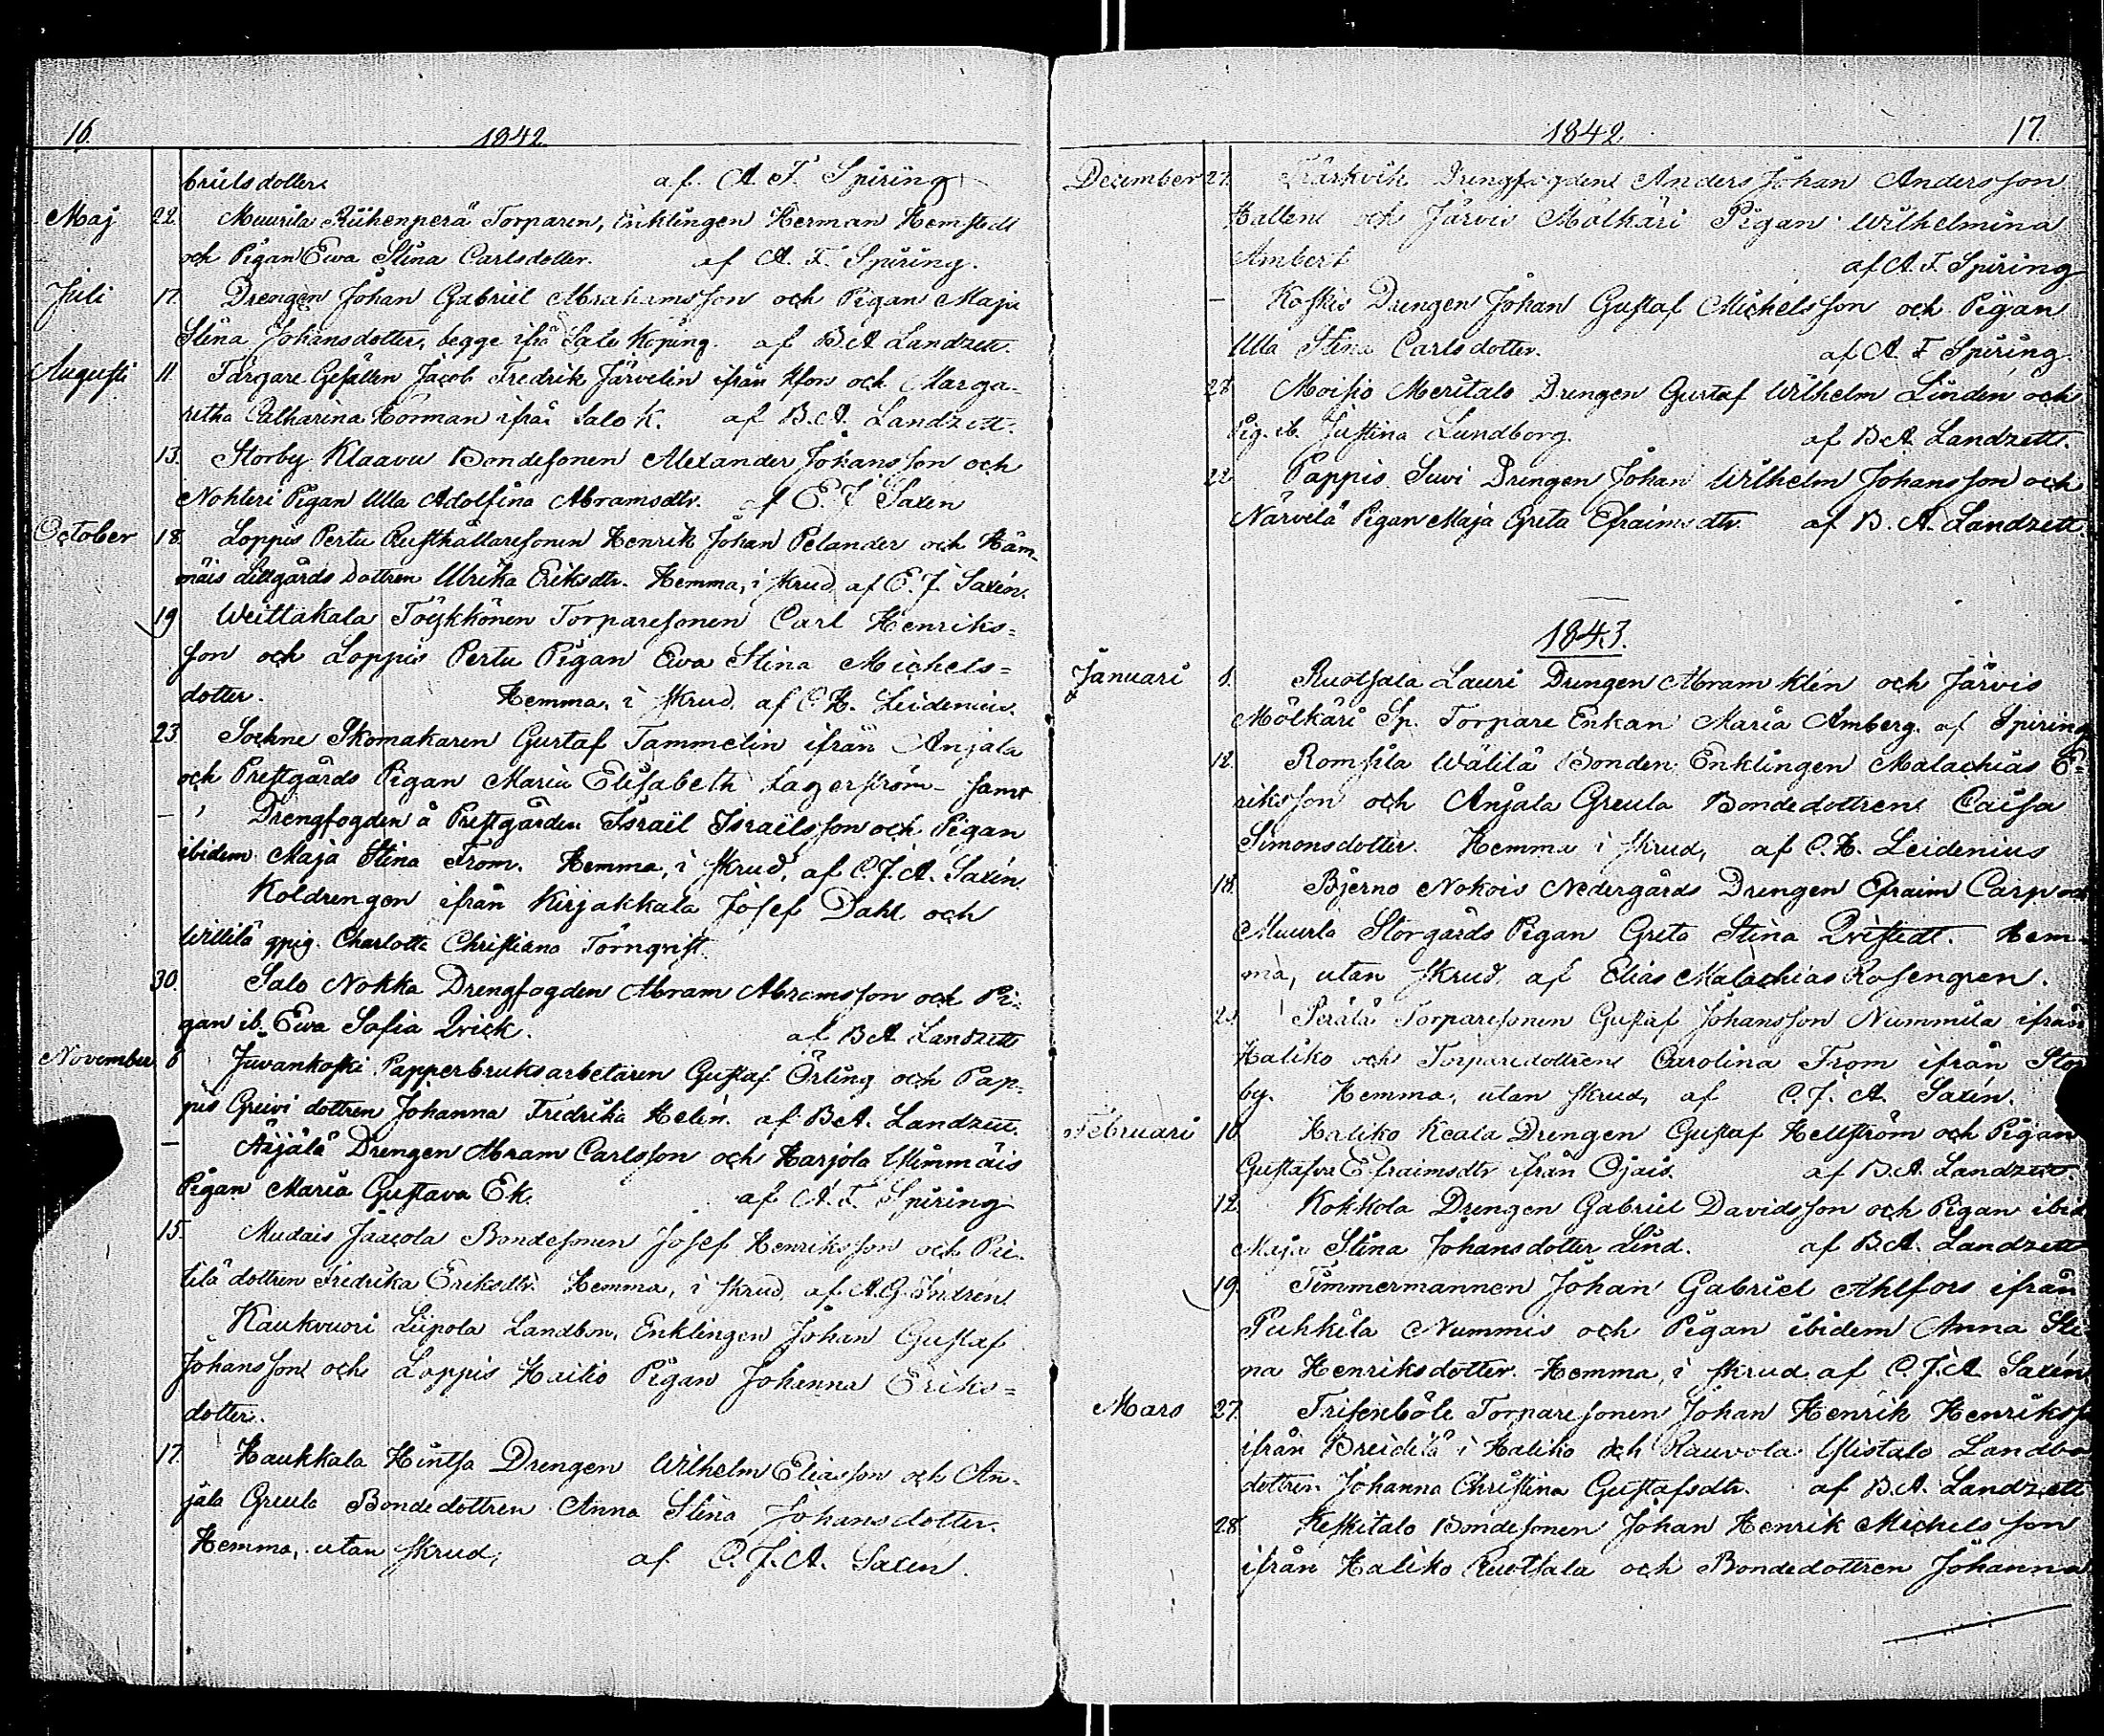 16.
1842.
brielsdotter. af A. F. Spiring
Maj 22. Muurila Riihenperä Torparen, Enklingen Herman Hemstedt
och Pigan Ewa Stina Carlsdotter. af A. F. Spiring.
Juli 17. Drengen Johan Gabriel Abrahamsson och Pigan Maja
Stina Johansdotter, begge ifrå Salo Köping. af B.A. Landzett.
Augusti 11. Färgare Gesällen Jacob Fredrik Järvelin ifrån och Marga-
retha Catharina Horman ifrån Salo K. af B.A. Landzett.
13. Storby Klaavu Bondesonen Alexander Johansson och
Nohteri Pigan Ulla Adolfina Abramsdtr. af E. J. Saxen
October 18. Loppis Pertu Rusthållaresonen Henrik Johan Pelander och Häm-
mäis Lillgårds dottren Ulrika Eriksdtr. Hemma, i skrud, af E. J. Saxén.
19 Weittakala Töykkönen Torparesonen Carl Henriks=
son och Loppis Pertu Pigan Ewa Stina Michels=
dotter. Hemma, i skrud, af C. H. Leidenius.
23. Sochne Skomakaren Gustaf Tammelin ifrån Anjala
och Prestgårds Pigan Maria Elisabeth Lagerström - samt
— Drengfogden å Prestgården Israël Israëlsson och Pigan
ibidem Maja Stina From. Hemma, i skrud, af C. J. A. Saxén.
Koldrengen ifrån Kirjakkala Josef Dahl och
Willilä qpig. Charlotta Christiana Törnqvist.
30. Salo Nokka Drengfogden Abram Abramsson och Pi-
gan ib. Ewa Sofia Qvick. af B A Landzett
November 6 Juvankoski Papperbruksarbetaren Gustaf Örling och Pap-
pis Greivi dottren Johanna Fredrika Helén. af B.A. Landzett.
— Äijälä Drengen Abram Carlsson och Harjola Ylimmäis
Pigan Maria Gustava Ek. af A. F. Spiring
15. Mudais Jaacola Bondesonen Josef Henriksson och Pie-
tilä dottren Fredrika Eriksdtr. Hemma, i skrud, af A. G. Indrén.
Kaukvuori Liipola Landbon, Enklingen Johan Gustaf
Johansson och Loppis Haitio Pigan Johanna Eriks=
dotter.
17. Haukkala Hintsa Drengen Wilhelm Eliasson och An-
jala Greula Bondedottren Anna Stina Johansdotter.
Hemma, utan skrud, af C. J. A. Saxen.
1842.
17.
December 27. Drengfogden Anders Johan Andersson
Hallen och Järvis Mölkäri Pigan Wilhelmina
Ambert af A. F. Spiring
— Koskis Drengen Johan Gustaf Michelsson och Pigan
Ulla Stina Carlsdotter. af A. F Spiring.
28 Moisio Meritalo Drengen Gustaf Wilhelm Lindén och
Pig. ib. Justina Lundborg. af B A. Landzett.
22 Pappis Suvi Drengen Johan Wilhelm Johansson och
Närvilä Pigan Maja Greta Efraimsdtr. af B. A. Landzett.
1843.
Januari 1. Ruotsala Lauri Drengen Abram Klén och Järvis
Mölkäri Sp. Torpare Enkan Maria Amberg. af Spiring
12. Romsila Wälilä Bonden, Enklingen Malachias E-
riksson och Anjala Greula Bondedottren Caisa
Simonsdotter. Hemma i skrud, af C. H. Leidenius
18. Bjerno Nokois Nedergårds Drengen Efraim Carp och
Muurla Storgårds Pigan Greta Stina Qvistedt. Hem-
ma, utan skrud, af Elias Malachias Rosengren.
Perälä Torparesonen Gustaf Johansson Nummila ifrån
Haliko och Torparedottren Carolina From ifrån Stor
by. Hemma, utan skrud, af C. J. A. Saxén.
Februari 10 Haliko Keala Drengen Gustaf Hellström och Pigan
Gustafva Efraimsdtr ifrån Ojais. af B A. Landzett.
12. Kokkola Drengen Gabriel Davidsson och Pigan ibid
Maja Stina Johansdotter Lind. af B.A. Landzett
19. Timmermannen Johan Gabriel Ahlfors ifrån
Puhkila Nummis och Pigan ibidem Anna Sti
na Henriksdotter. Hemma, i skrud, af C. J. A. Saxén.
Mars 27. Frisenböle Torparesonen Johan Henrik Henrikss
ifrån Breidilä i Haliko och Rauvola Ylistalo Landbo
dottren Johanna Christina Gustafsdtr. af B.A. Landzett
28. Keskitalo Bondesonen Johan Henrik Michelsson
ifrån Haliko Ruotsala och Bondedottren Johanna